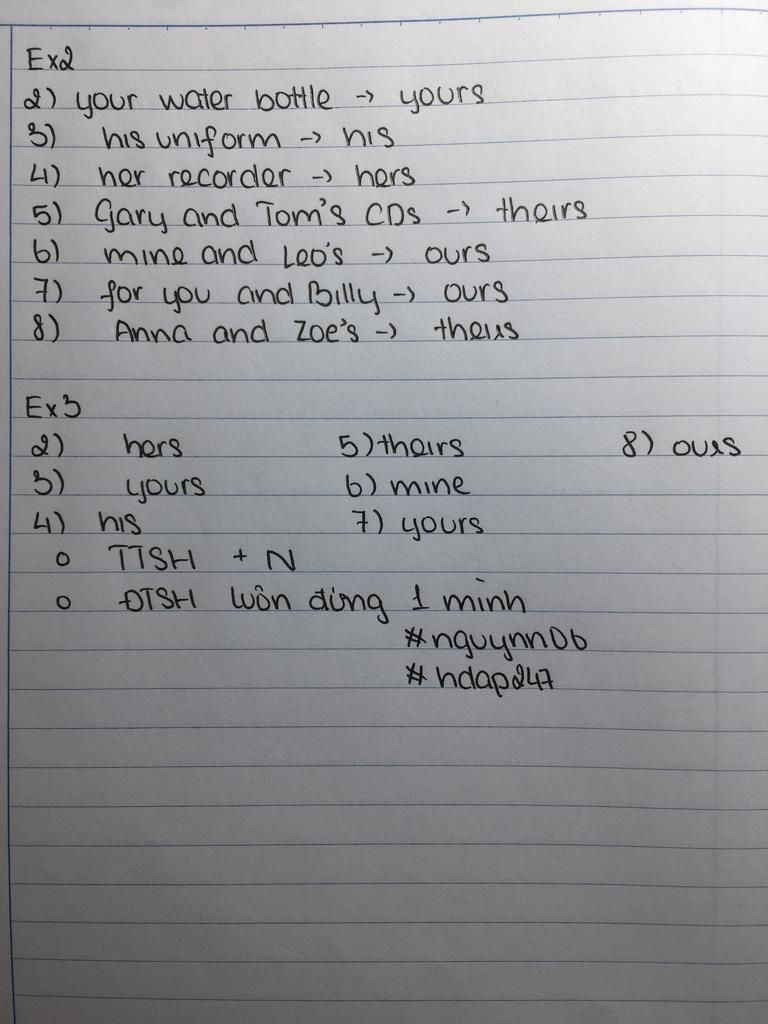 Ex2
2) your water bottle → yours
3) his uniform → his
4) her recorder → hers
5) Gary and Tom's CDs → theirs
6) mine and Leo's → ours
7) for you and Billy → ours
8) Anna and Zoe's → theirs
Ex3
2) hers 5) theirs 8) ours
3) yours 6) mine
4) his 7) yours
o TTSH + N
o ĐTSH luôn đứng 1 mình
#nguynn06
#hdap247